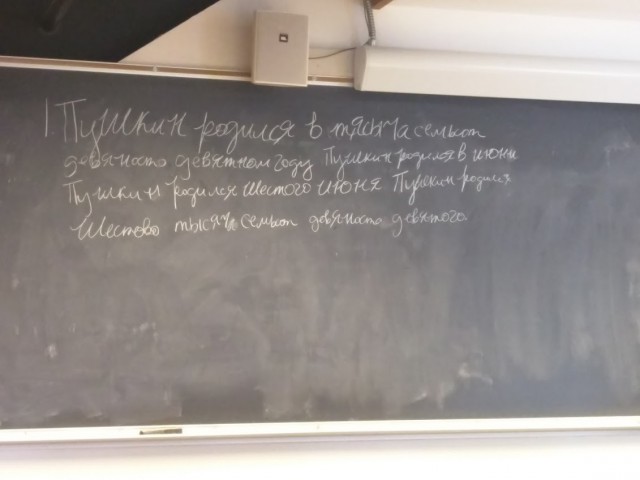 1. Пушкин родился в тясяча семьсот
девяноста девятном году Пушкин родился в июни
Пушкин родился шестого июня Пушкин родился
шестово тысяча семьсот девяноста девятого